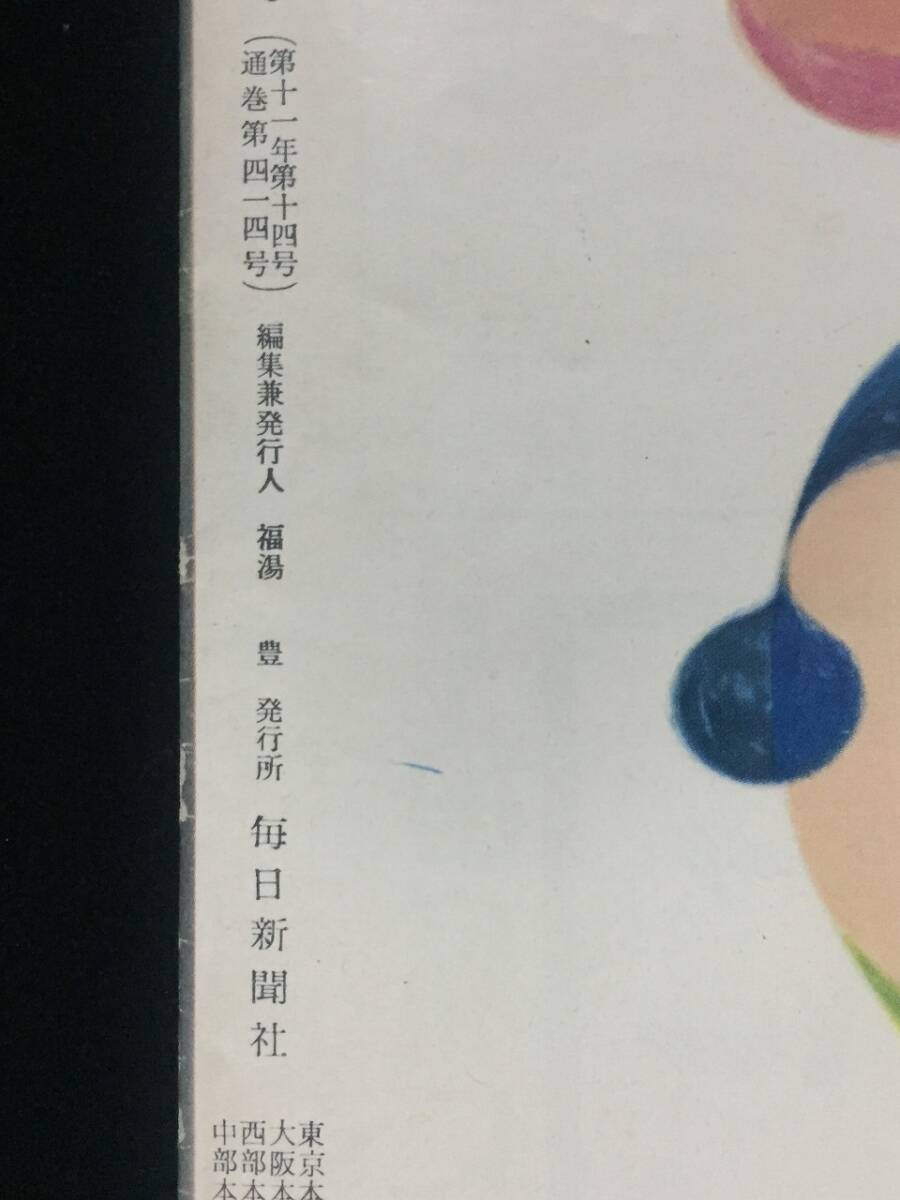 （第十一年第十四号
通巻第四一四号）
編集兼発行人 福湯 豊 発行所 毎日新聞社
東京本
大阪本
西部本
中部本